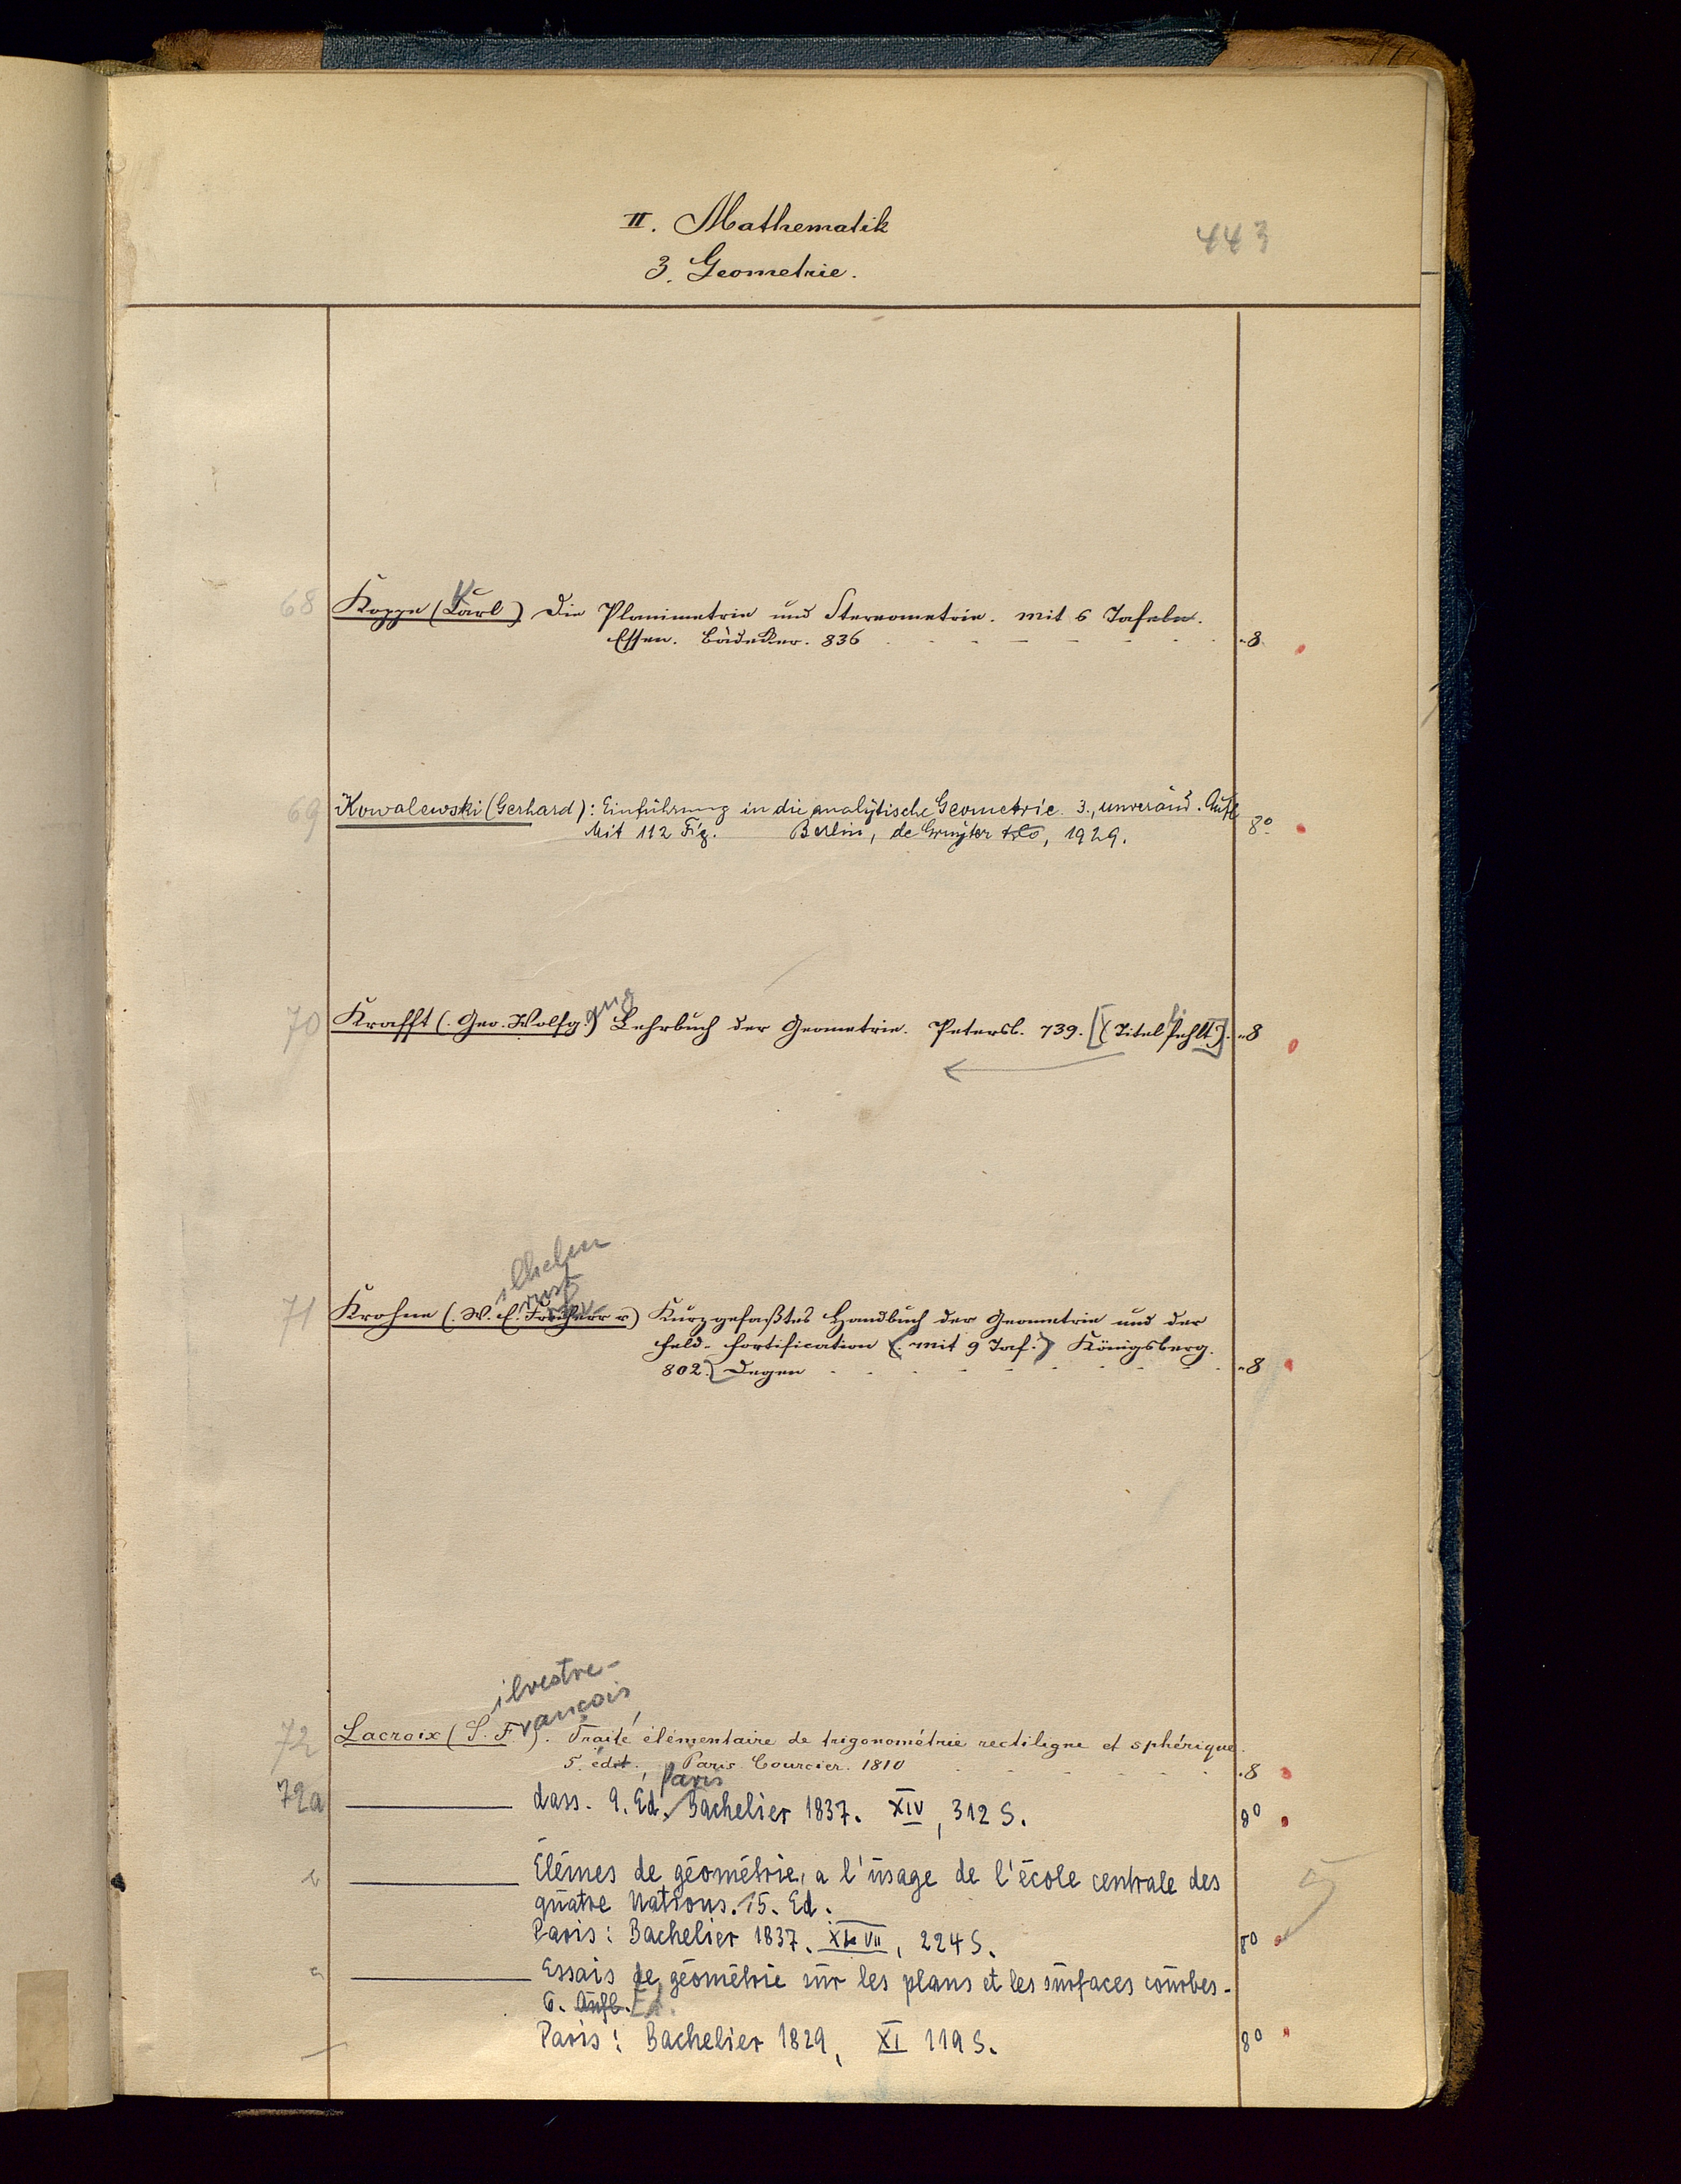 II. Mathematik
443
3. Geometrie.
68 Koppe (Carl) Die Planimetrie und Stereometrie. mit 6 Tafeln.
K
Essen. Bädeker. 836 - - - - - - - "8
69 Kowalewski (Gerhard): Einführung in die analytische Geometrie. 3., unveränd. Aufl
Mit 112 Fig. Berlin, de Gruyter & Co, 1929. 8°
ang
70 Krafft (Geo. Wolfg.) Lehrbuch der Geometrie. Petersb. 739. [(Titel fehlt)]. "8
ilhelm
rnst
71 Krohne (W. E. Freiherr v) Kurzgefaßtes Handbuch der Geometrie und der
Feld-fortification (mit 9 Taf.) Königsberg.
802. Degen - - - - - - - - "8
ilvestre-
rançois
72 Lacroix (S. F.). Traité élémentaire de trigonométrie rectiligne et sphérique.
5. édit., Paris. Courcier. 1810 - - - - - - "8
Paris
72a ——— dass. 9. Ed. Bachelier 1837. XIV, 312 S. 8°
b ——— Élémes de géométrie, a l'usage de l'école centrale des
quatre Nations. 15. Ed.
5
Paris: Bachelier 1837. , 224 S. 8°
c ——— Essais de géométrie sur les plans et les surfaces courbes.
6. Aufl. Ed.
Paris: Bachelier 1829, XI 119 S. 8°